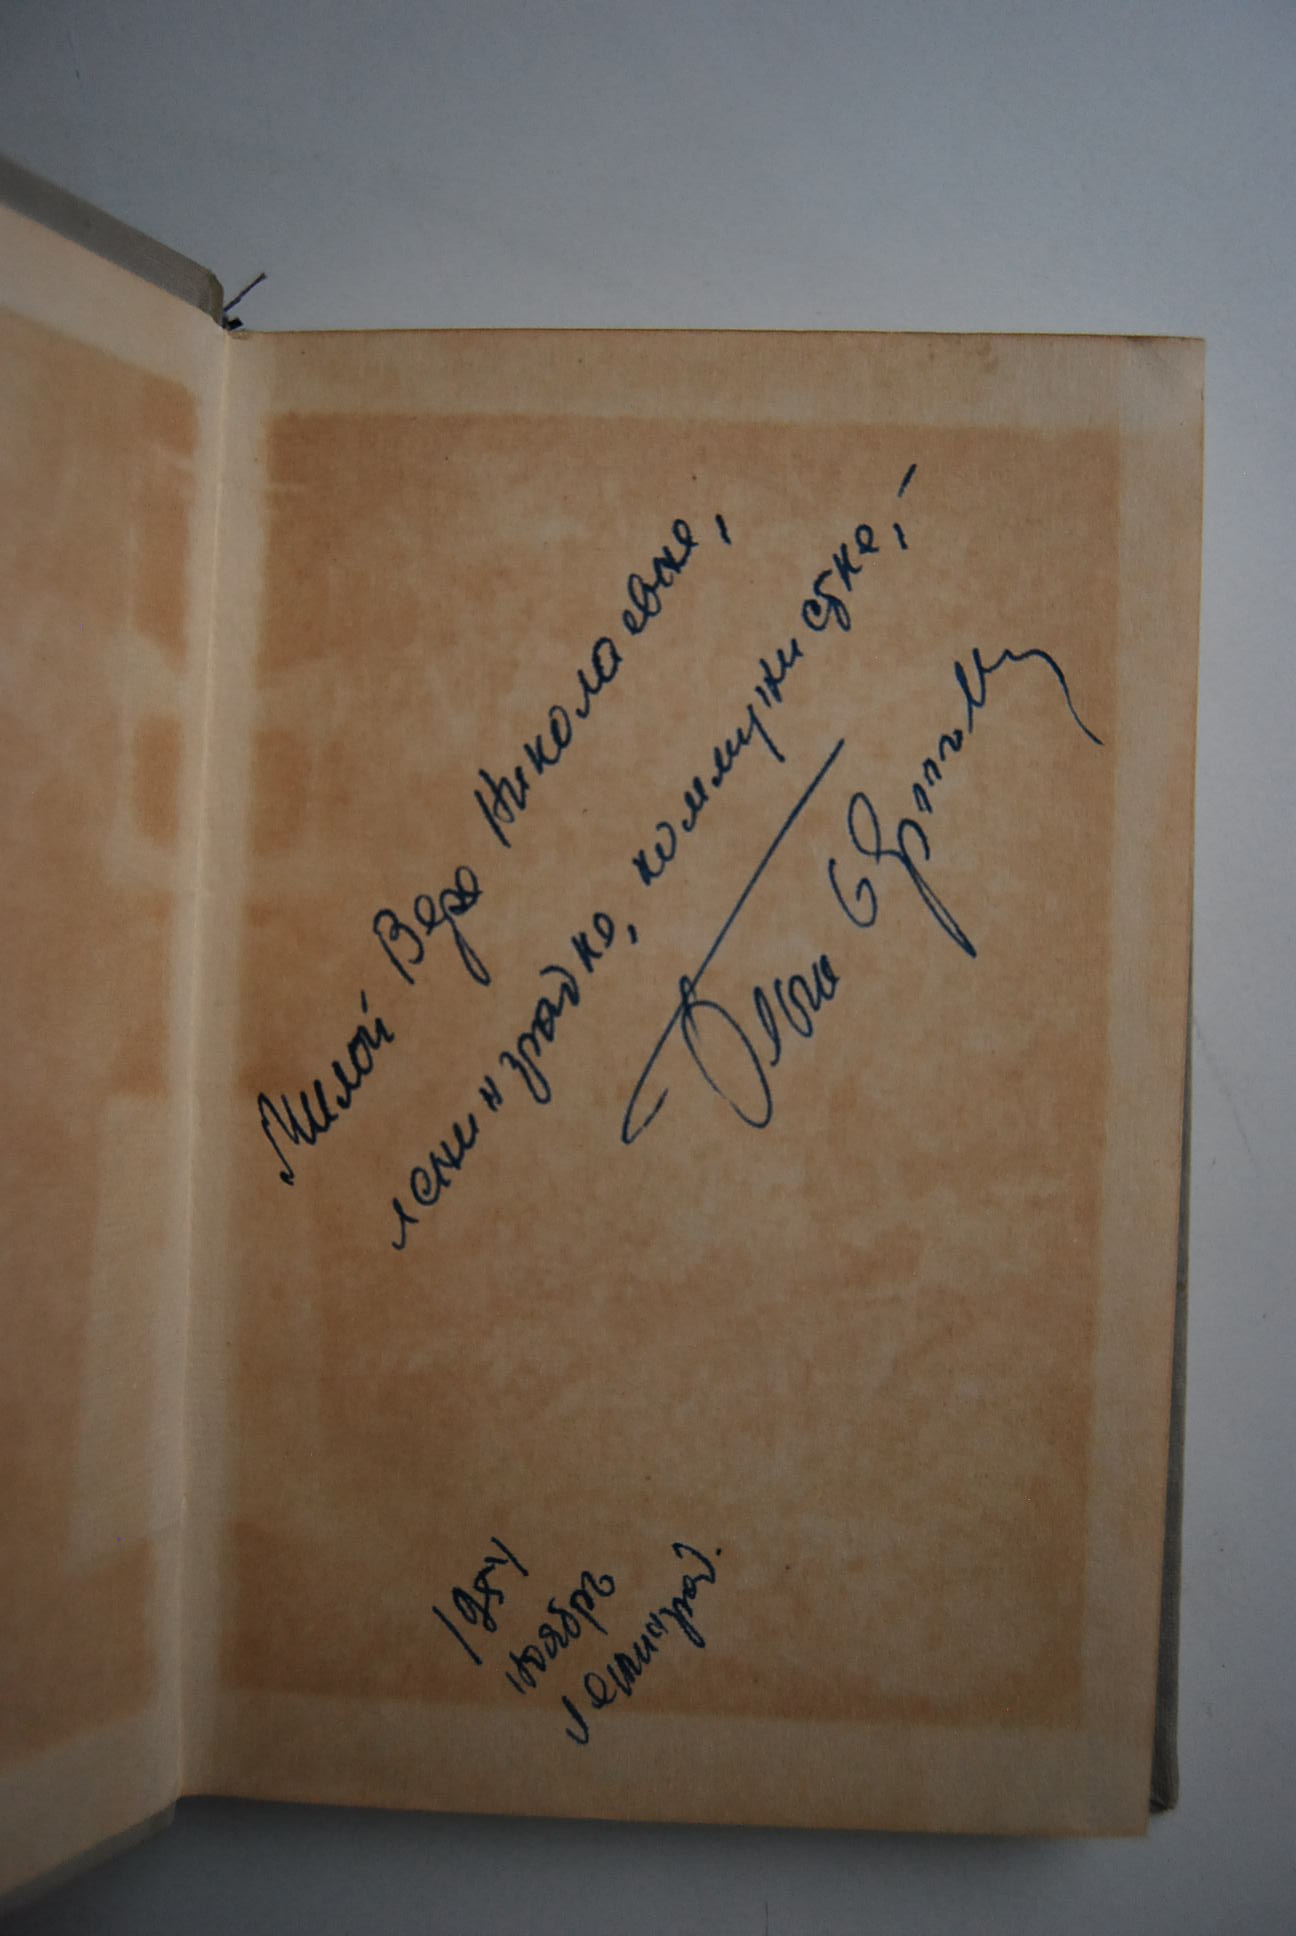 Милой Вере Николаевне,
ленинградке, коммунистке, —
Ольга Берггольц
1954
ноябрь
Ленинград.